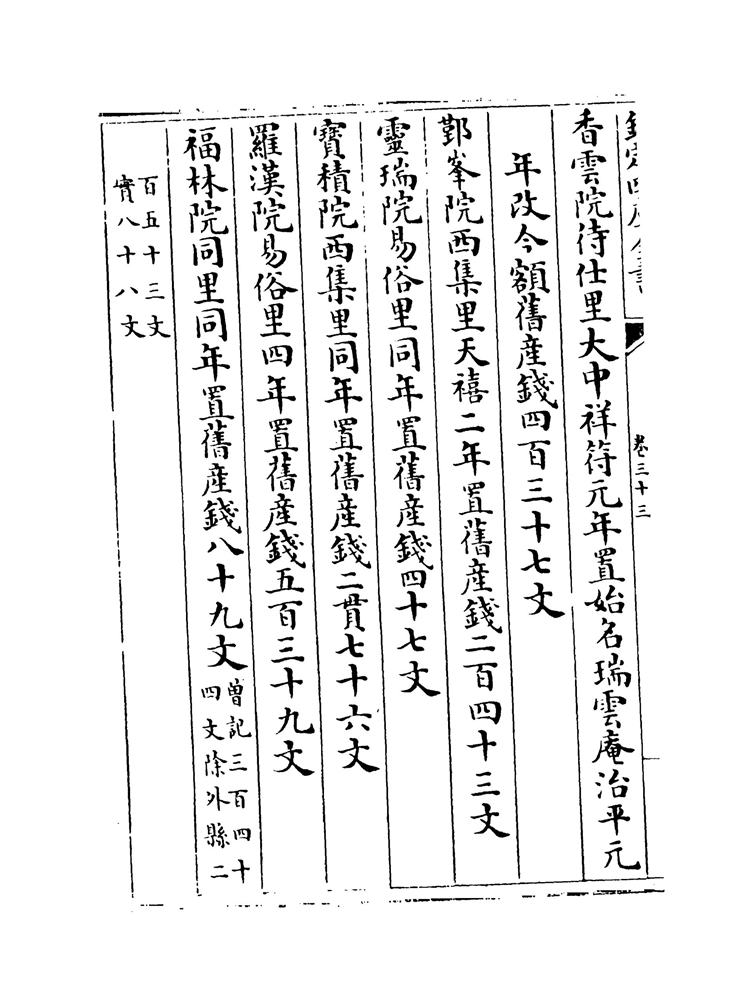 欽定四庫全書
卷三十三
香雲院待仕里大中祥符元年置始名瑞雲庵治平元
年改今額舊産錢四百三十七文
鄞峯院西集里天禧二年置舊産錢二百四十三文
靈瑞院易俗里同年置舊産錢四十七文
寳積院西集里同年置舊産錢二貫七十六文
羅漢院易俗里四年置舊産錢五百三十九文
福林院同里同年置舊産錢八十九文曽記三百四十
四文除外縣二
百五十三文
實八十八文